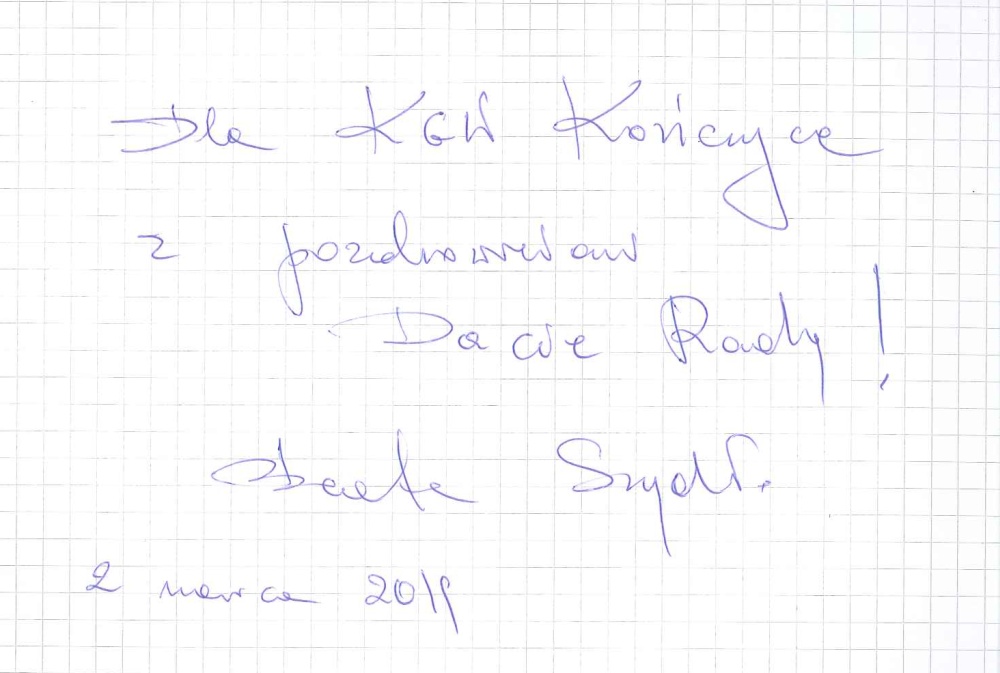 Dla KGW Kończyce
z pozdrowieniami
Dacie Rady!
Beata Szydło
2 marca 2019